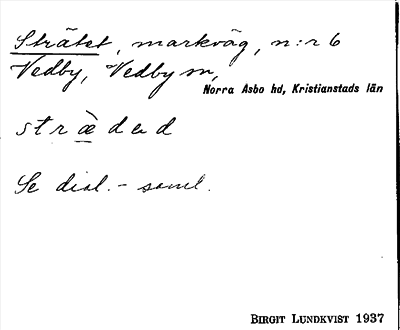 Strätet, markväg, n:r 6
Vedby, Vedby sn,
Norra Åsbo hd, Kristianstads län
strædəd
Se dial.- saml.
BIRGIT LUNDKVIST 1937